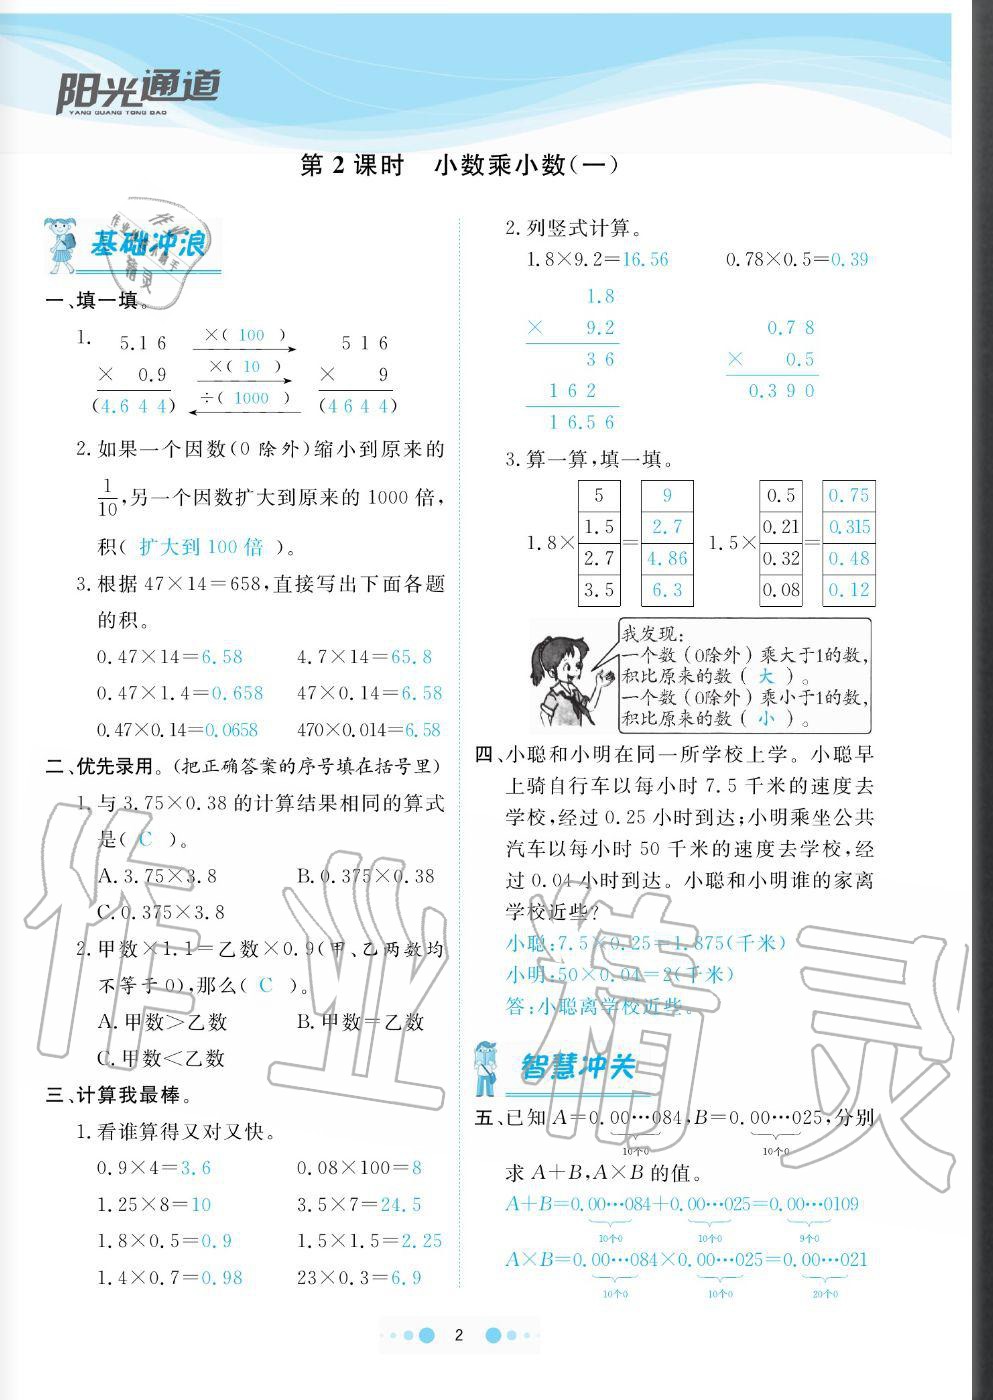 阳光通道
YANG GUANG TONG DAO
第2课时 小数乘小数(一)
基础冲浪
一、填一填。
1. 5.16 ×( 100 ) 516
× 0.9 ×( 10 ) × 9
(4.644) ÷( 1000 ) (4644)
2. 如果一个因数(0 除外)缩小到原来的
1/10,另一个因数扩大到原来的 1000 倍,
积( 扩大到 100 倍 )。
3. 根据 47×14=658,直接写出下面各题
的积。
0.47×14=6.58 4.7×14=65.8
0.47×1.4=0.658 47×0.14=6.58
0.47×0.14=0.0658 470×0.014=6.58
二、优先录用。(把正确答案的序号填在括号里)
1. 与 3.75×0.38 的计算结果相同的算式
是( C )。
A. 3.75×3.8 B. 0.375×0.38
C. 0.375×3.8
2. 甲数×1.1=乙数×0.9(甲、乙两数均
不等于 0),那么( C )。
A. 甲数>乙数 B. 甲数=乙数
C. 甲数<乙数
三、计算我最棒。
1. 看谁算得又对又快。
0.9×4=3.6 0.08×100=8
1.25×8=10 3.5×7=24.5
1.8×0.5=0.9 1.5×1.5=2.25
1.4×0.7=0.98 23×0.3=6.9
2. 列竖式计算。
1.8×9.2=16.56 0.78×0.5=0.39
1.8
× 9.2 0.78
36 × 0.5
162 0.390
16.56
3. 算一算,填一填。
5 9 0.5 0.75
1.5 2.7 0.21 0.315
1.8× = 1.5× =
2.7 4.86 0.32 0.48
3.5 6.3 0.08 0.12
我发现:
一个数(0除外)乘大于1的数,
积比原来的数( 大 )。
一个数(0除外)乘小于1的数,
积比原来的数( 小 )。
四、小聪和小明在同一所学校上学。小聪早
上骑自行车以每小时 7.5 千米的速度去
学校,经过 0.25 小时到达;小明乘坐公共
汽车以每小时 50 千米的速度去学校,经
过 0.04 小时到达。小聪和小明谁的家离
学校近些?
小聪:7.5×0.25=1.875(千米)
小明:50×0.04=2(千米)
答:小聪离学校近些。
智慧冲关
五、已知 A=0.00…084,B=0.00…025,分别
10个0 10个0
求 A+B,A×B 的值。
A+B=0.00…084+0.00…025=0.00…0109
10个0 10个0 9个0
A×B=0.00…084×0.00…025=0.00…021
10个0 10个0 20个0
2
作业精灵